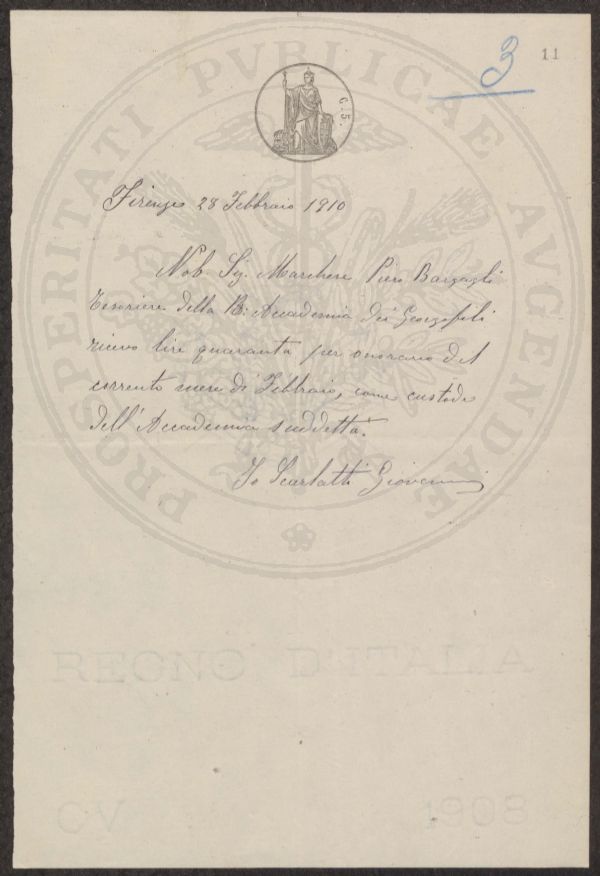 3
11
C. 5.
Firenze 28 Febbraio 1910
Nob. Sig. Marchese Piero Bargagli
Tesoriere della R. Accademia dei Georgofili
ricevo lire quaranta per onorario del
corrente mese di Febbraio, come custode
dell'Accademia suddetta.
Io Scarlatti Giovanni
PROSPERITATI PVBLICAE AVGENDAE
REGNO D'ITALIA
CV 1908